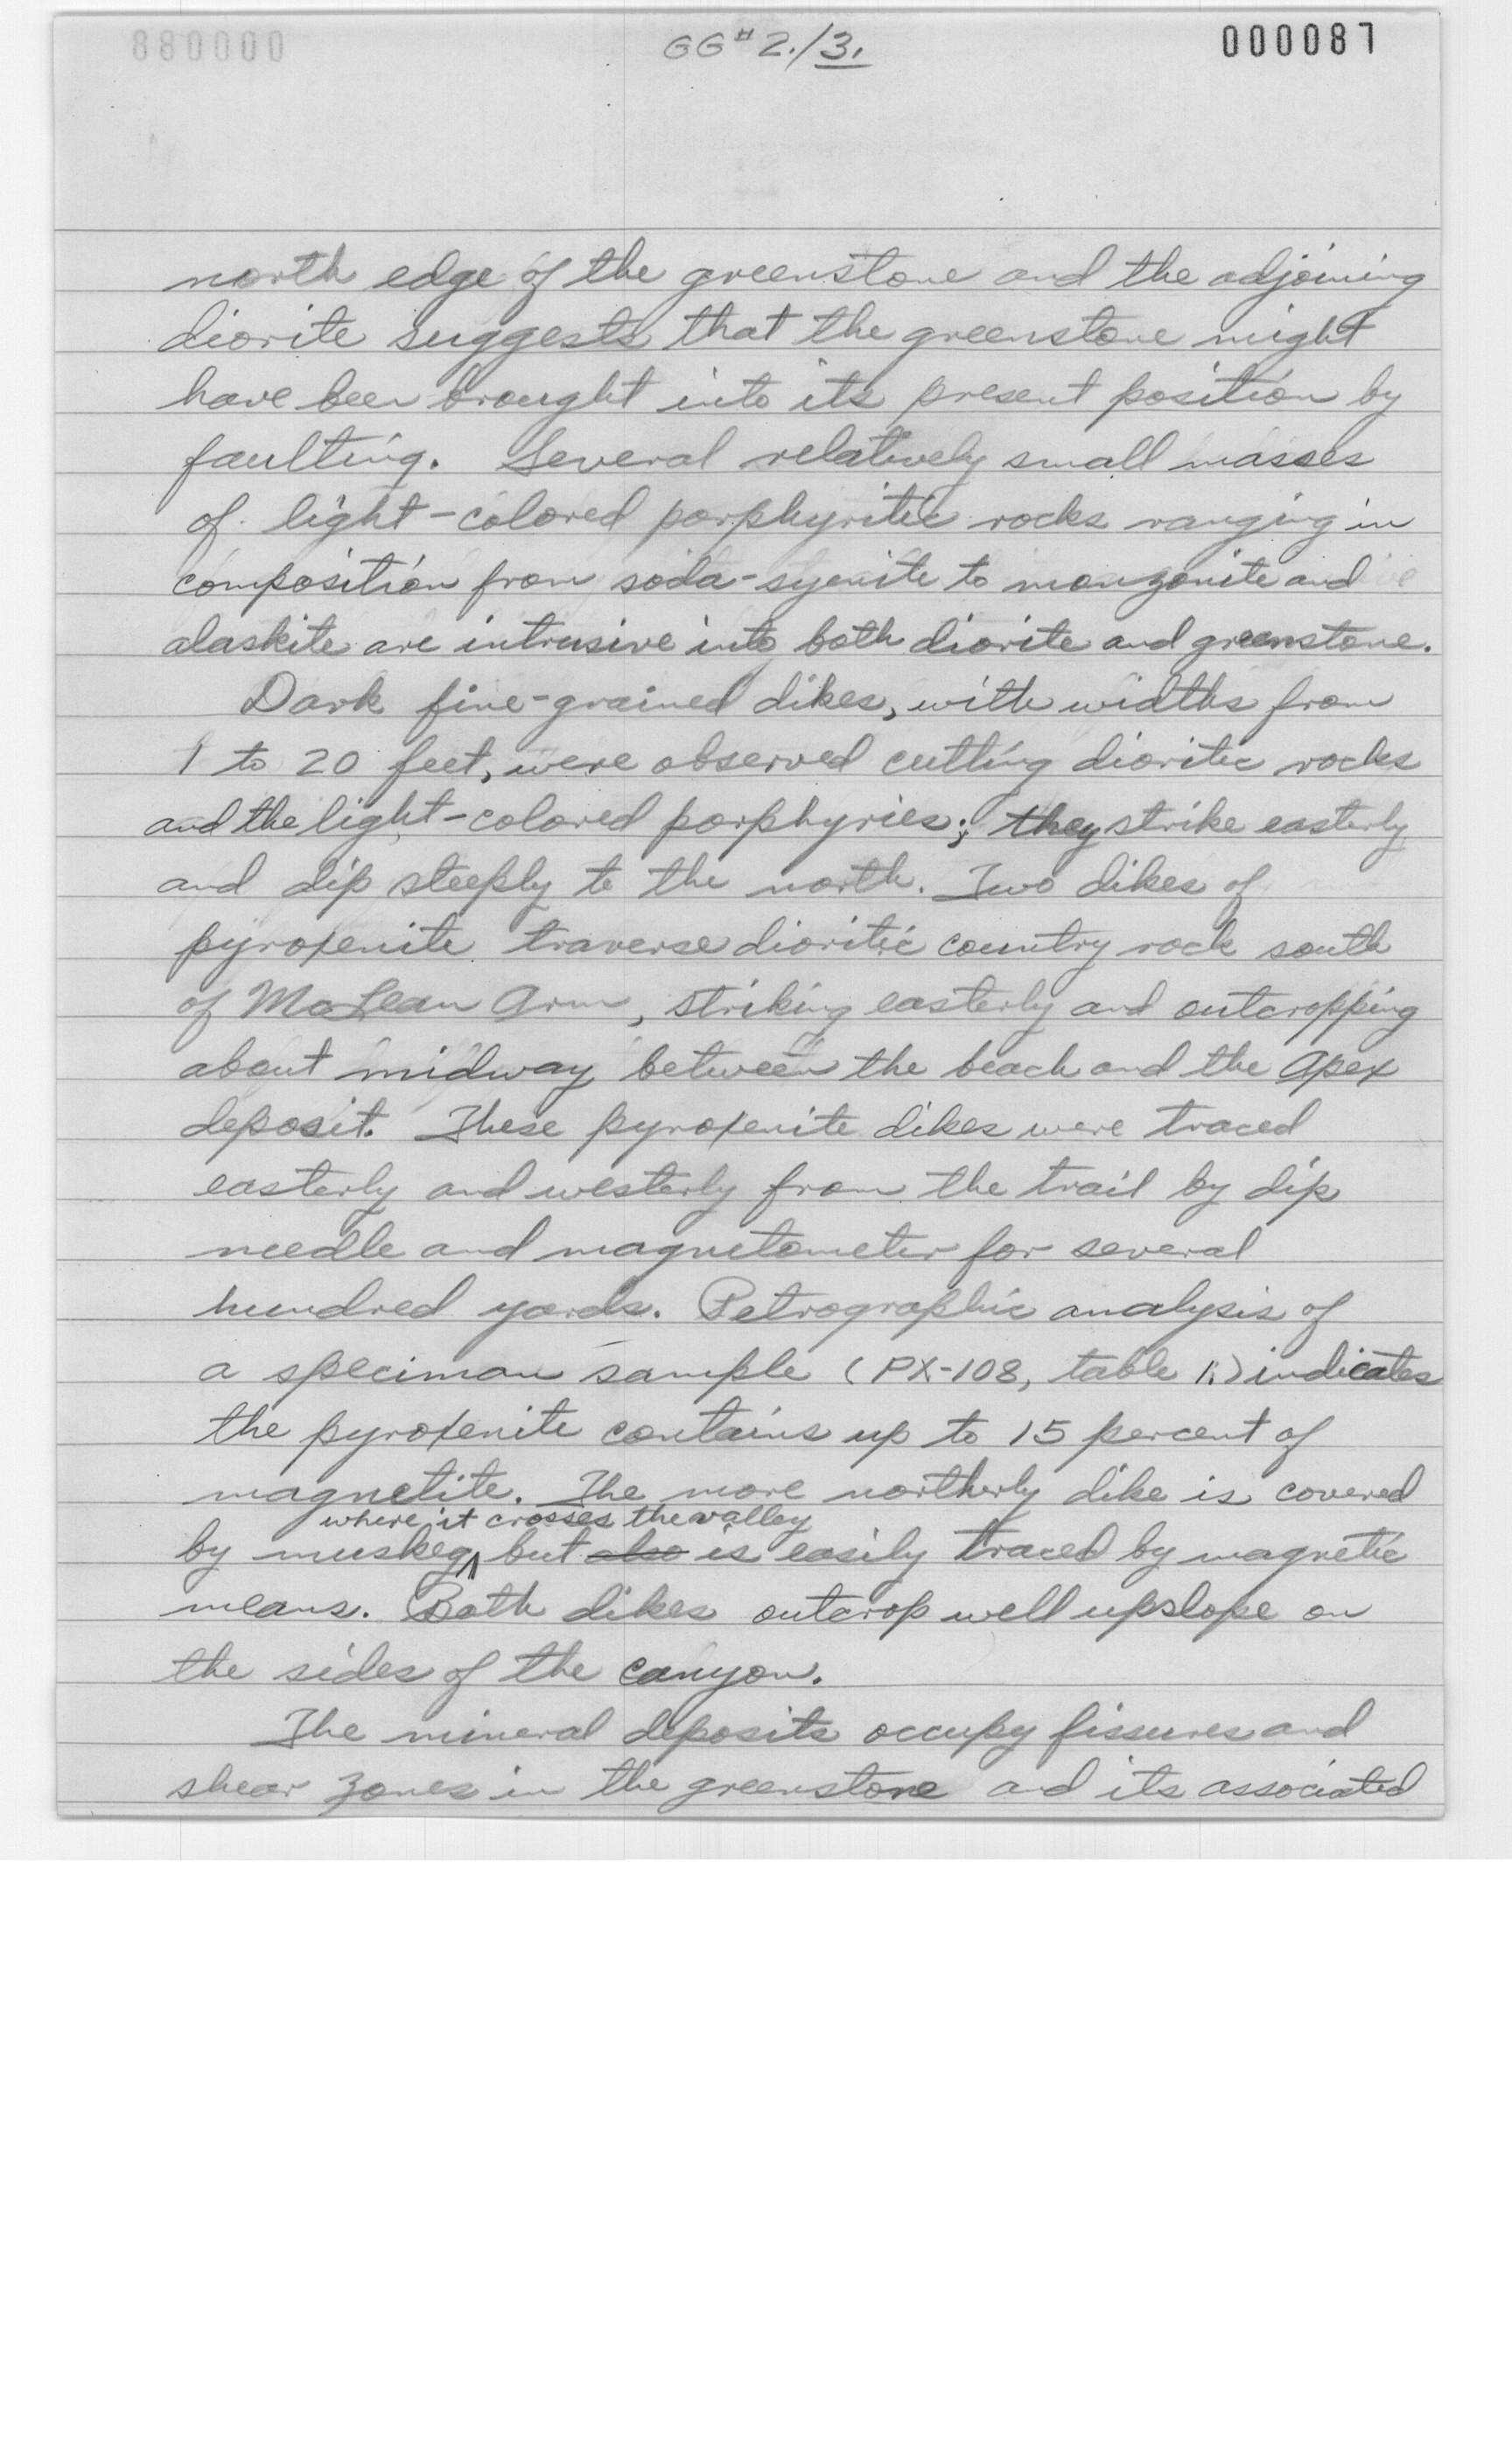 GG#2./3.
000087
north edge of the greenstone and the adjoining
diorite suggests that the greenstone might
have been brought into its present position by
faulting. Several relatively small masses
of light-colored porphyritic rocks ranging in
composition from soda-syenite to monzonite and
alaskite are intrusive into both diorite and greenstone.
Dark fine-grained dikes, with widths from
1 to 20 feet, were observed cutting dioritic rocks
and the light-colored porphyries; they strike easterly
and dip steeply to the north. Two dikes of
pyroxenite traverse dioritic country rock south
of McLean Arm, striking easterly and outcropping
about midway between the beach and the Apex
deposit. These pyroxenite dikes were traced
easterly and westerly from the trail by dip
needle and magnetometer for several
hundred yards. Petrographic analysis of
a speciman sample (PX-108, table 1.) indicates
the pyroxenite contains up to 15 percent of
magnetite. The more northerly dike is covered
where it crosses the valley
by muskeg, but also is easily traced by magnetic
means. Both dikes outcrop well upslope on
the sides of the canyon.
The mineral deposits occupy fissures and
shear zones in the greenstone and its associated